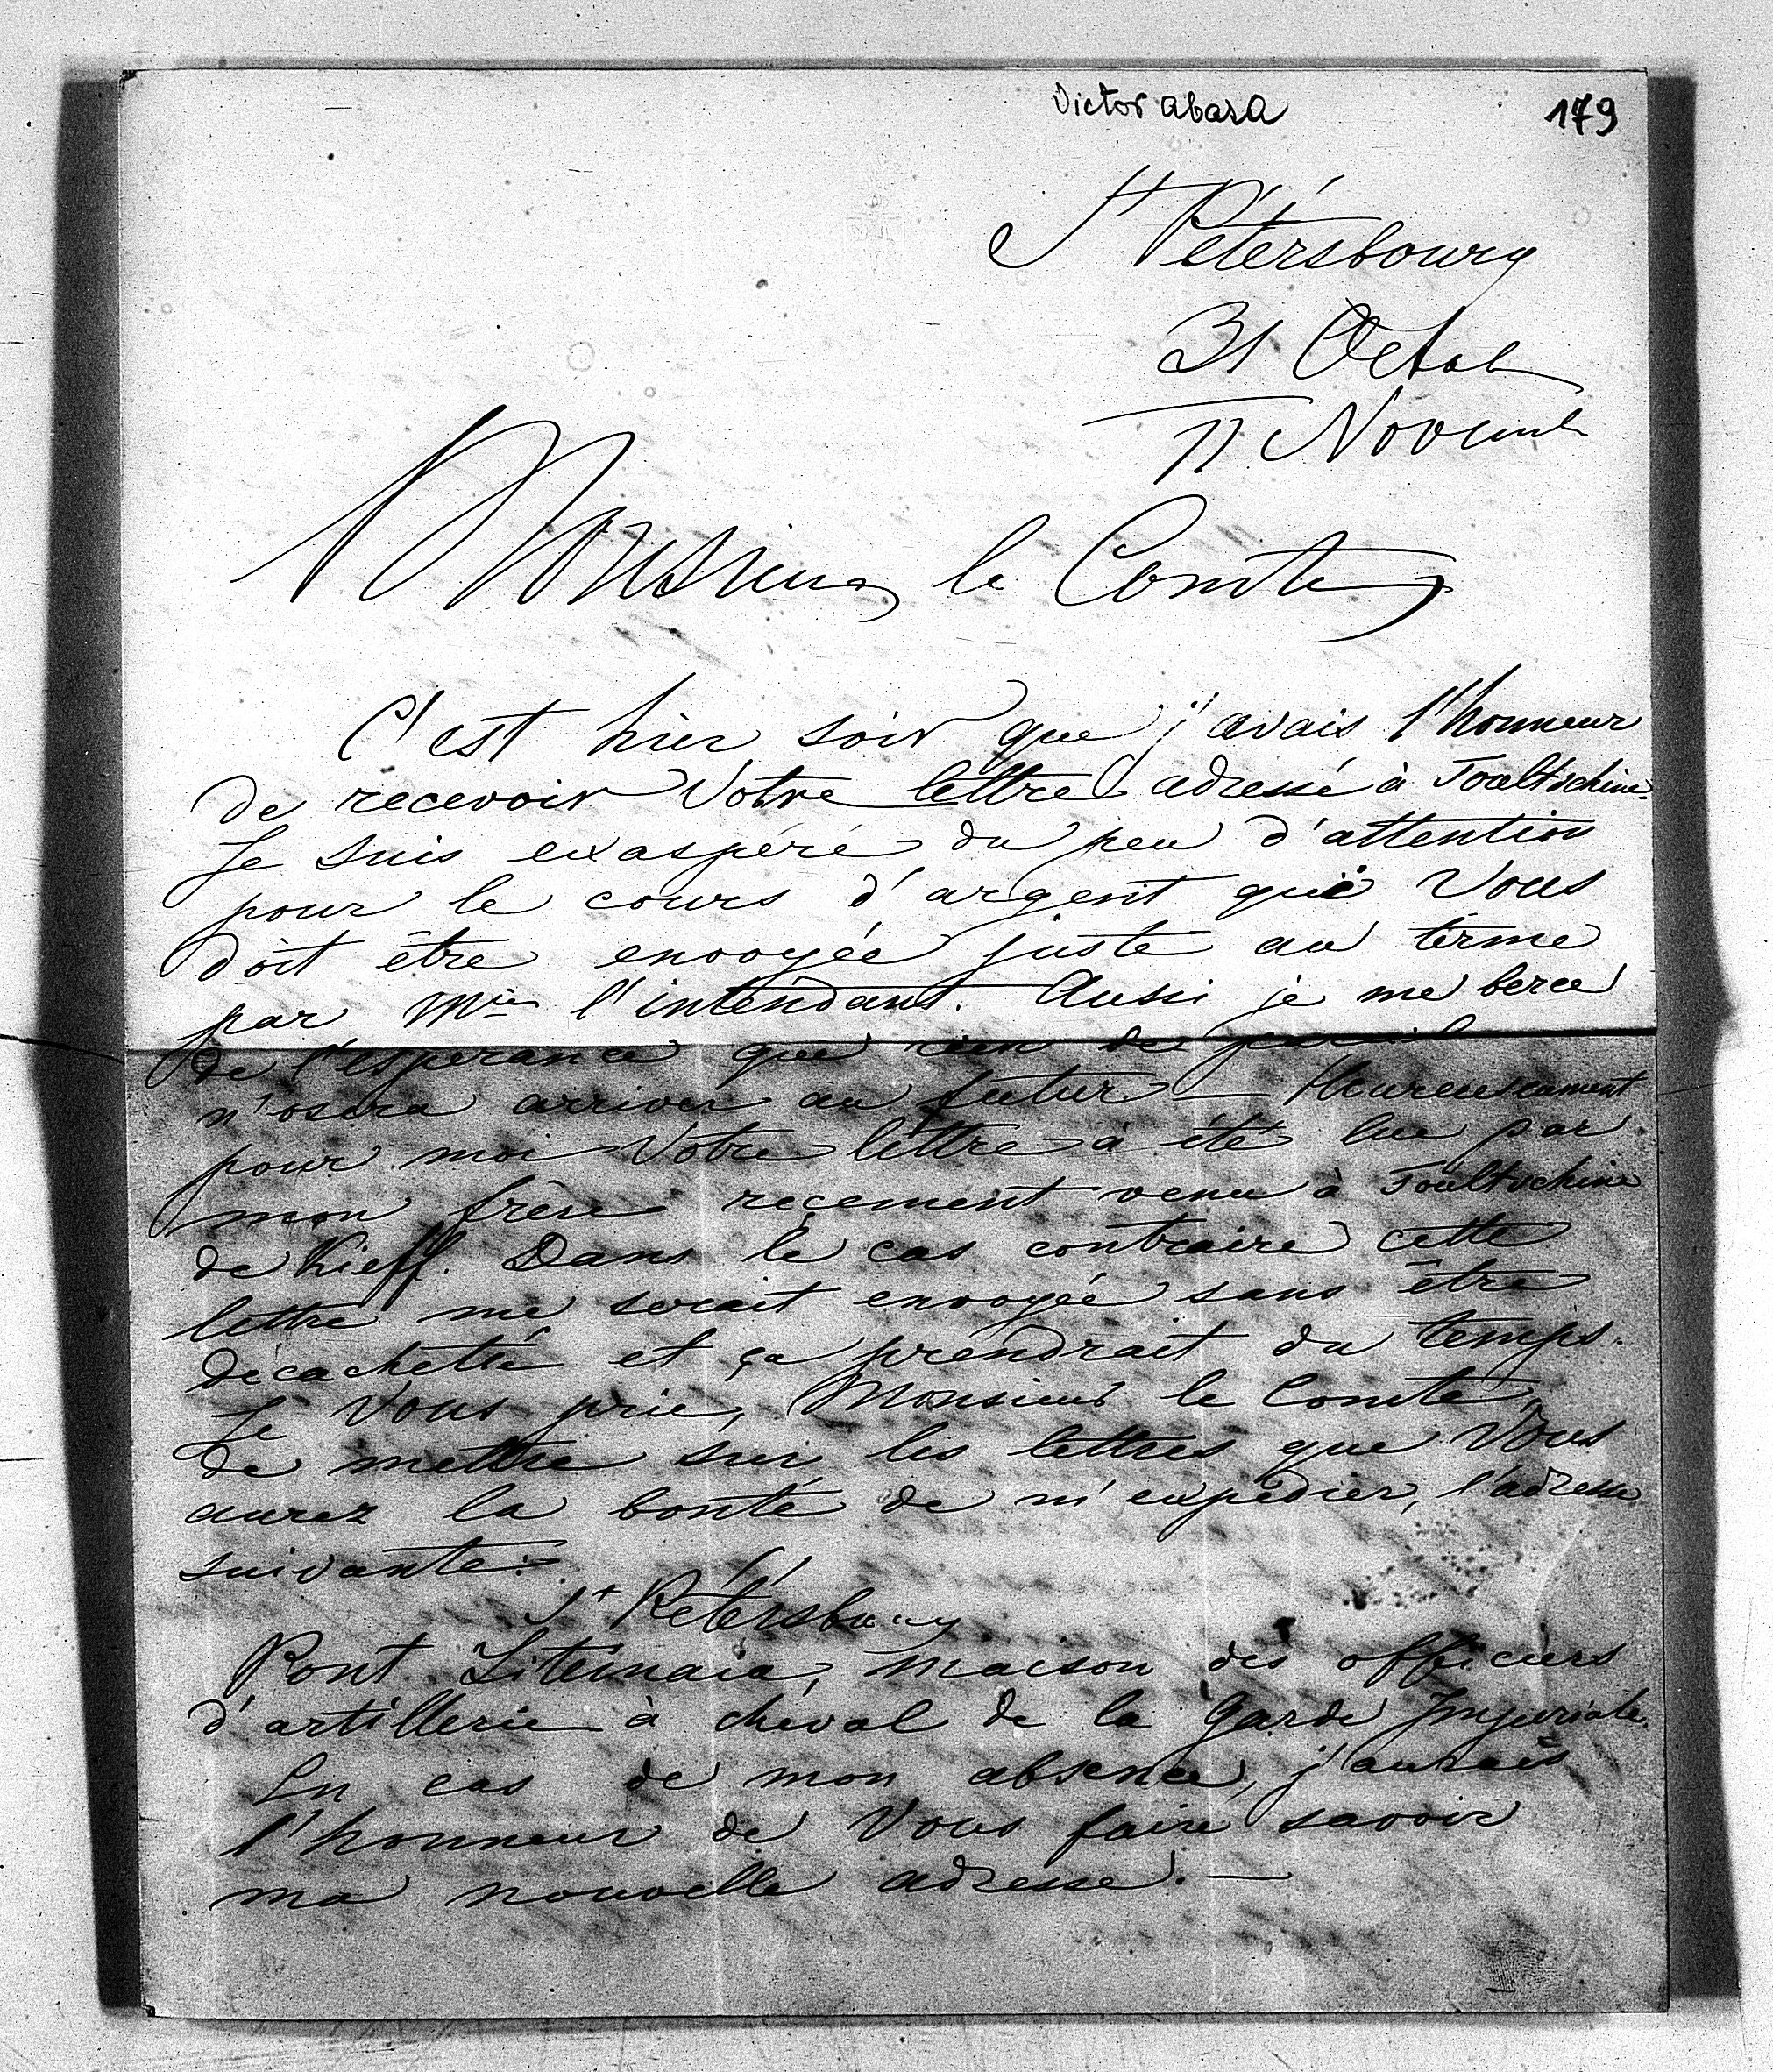 Victor abaza
179
St Pétersbourg
31 Octob
11 Novemb
Monsieur le Comte,
C'est hier soir que j'avais l'honneur
de recevoir Votre lettre adressé à Toultschine.
Je suis exaspéré du peu d'attention
pour le cours d'argent qui Vous
doit être envoyée juste au terme
par Mr l'intendant. Aussi je me berce
de l'esperance que rien de pareil
n'osera arriver au futur — Heureuseument
pour moi Votre lettre a été lue par
mon frère recement venu à Toultschine
de Kieff. Dans le cas contraire cette
lettre me serait envoyée sans être
décachetée et ça prendrait du temps.
Je Vous prie, Monsieur le Comte,
de mettre sur les lettres que Vous
aurez la bonté de m'expédier, l'adresse
suivante:
St Pétersbourg
Pont Liteinaia, maison des officiers
d'artillerie à cheval de la Garde Imperiale.
En cas de mon absence, j'aurais
l'honneur de Vous faire savoir
ma nouvelle adresse. —